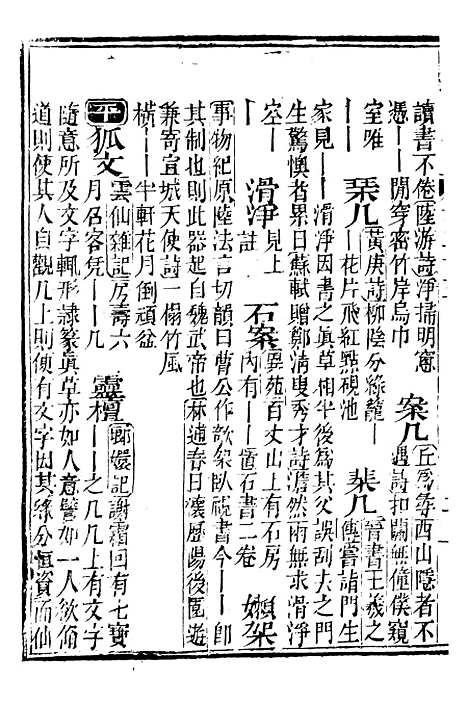 讀書不倦陸游詩淨掃明窻
憑——閒穿密竹岸烏巾
案几
丘爲尋西山隱者不
遇詩扣關無僮僕窺
室唯——
琹几
黃庚詩柳陰分綠籠——
——花片飛紅點硯池
棐几
晉書王羲之
傳嘗詣門生
家見——滑淨因書之眞草相半後爲其父誤刮去門
生驚懊者累日蘇軾贈鄭清叟秀才詩澹然兩無求滑淨
空——
滑淨
註見上
——
石案
異苑百丈山上有石房
內有——置石書二卷
嬾架
事物紀原陸法言切韻曰曹公作欹架臥視書今——即
其制也則此器起自魏武帝也林逋春日懷歷陽後園遊
兼寄宜城天使詩一榻竹風
橫——半軒花月倒頑盆
平
狐文
雲仙雜記房壽六
月召客凭——几
靈檀
瑯嬛記謝霜回有七寶
——之几几上有文字
隨意所及文字輒形隷篆眞草亦如人意譬如一人欲脩
道則使其人自觀几上則便有文字因其緣分恒資而仙